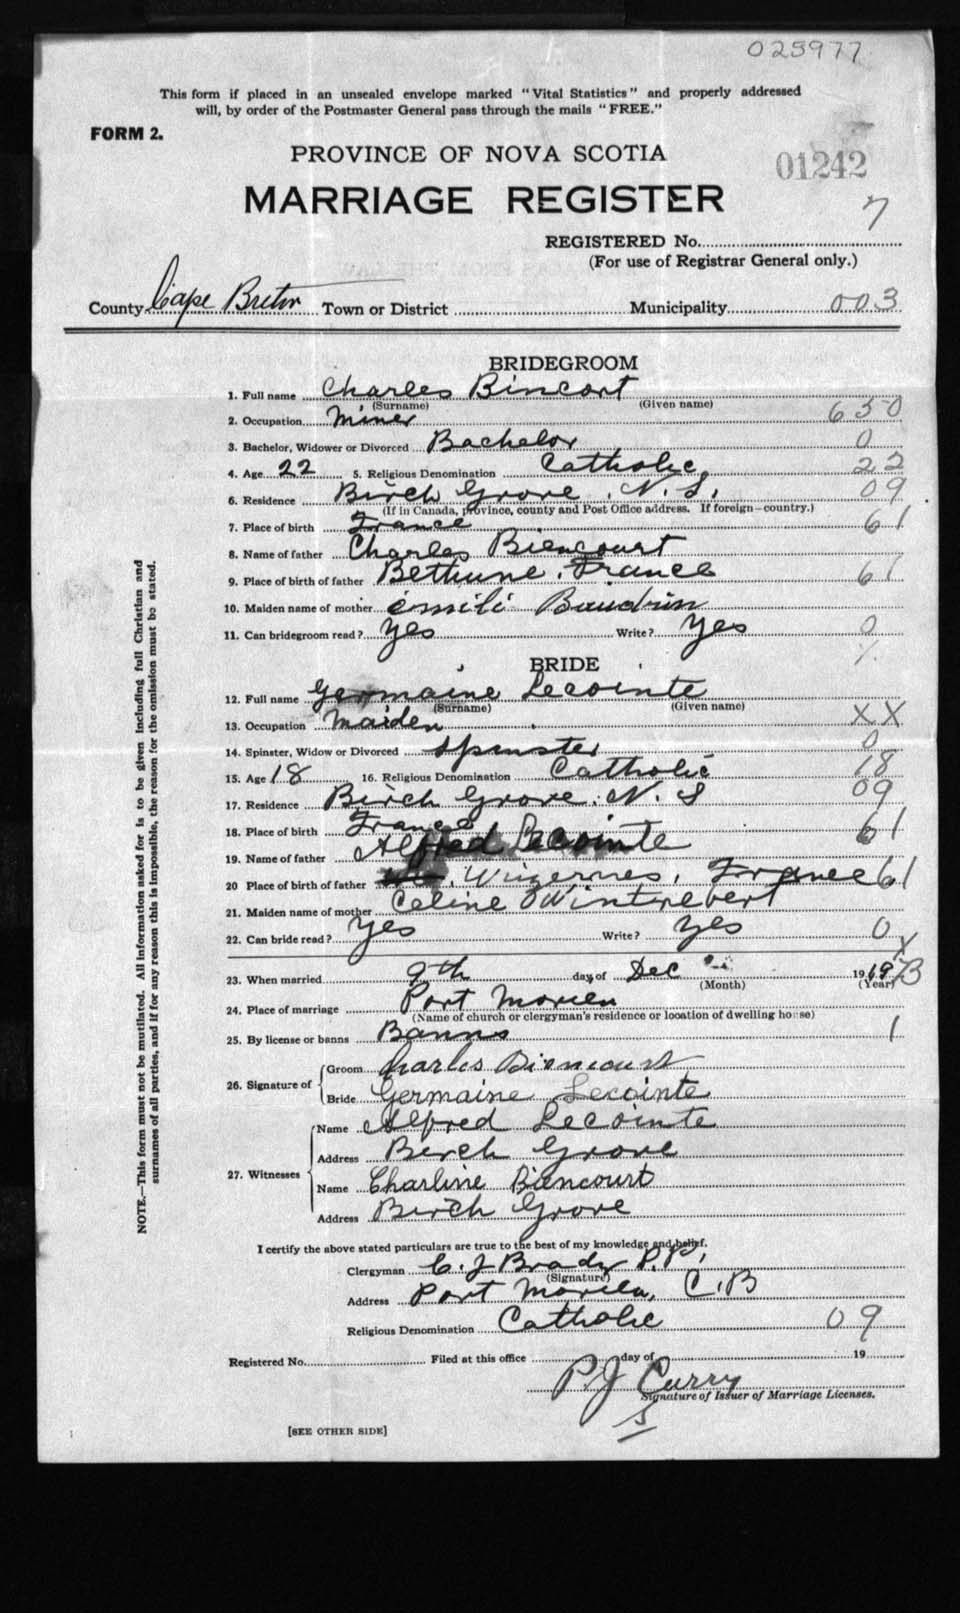 025977
This form if placed in an unsealed envelope marked "Vital Statistics" and properly addressed
will, by order of the Postmaster General pass through the mails "FREE."
FORM 2.
PROVINCE OF NOVA SCOTIA
01242
MARRIAGE REGISTER
7
REGISTERED No.
(For use of Registrar General only.)
County Cape Breton Town or District Municipality 003
BRIDEGROOM
1. Full name Charles Bincort
(Surname) (Given name)
2. Occupation Miner 650
3. Bachelor, Widower or Divorced Bachelor 0
4. Age 22 5. Religious Denomination Catholic 22
6. Residence Birch Grove, N.S. 09
(If in Canada, province, county and Post Office address. If foreign—country.)
7. Place of birth France 61
8. Name of father Charles Biencourt
9. Place of birth of father Bethune, France 61
10. Maiden name of mother émili Baudrin
11. Can bridegroom read? Yes Write? Yes 0
BRIDE
12. Full name Germaine Lecointe
(Surname) (Given name)
13. Occupation Maiden XX
14. Spinster, Widow or Divorced Spinster 0
15. Age 18 16. Religious Denomination Catholic 18
17. Residence Birch Grove. N. S 09
18. Place of birth France 61
19. Name of father Alfred Lecointe
20 Place of birth of father Wizernes, France 61
21. Maiden name of mother Celine Wintrebert
22. Can bride read? Yes Write? Yes 0
23. When married 9th day of Dec 1919
(Month) (Year)
24. Place of marriage Port Morien
(Name of church or clergyman's residence or location of dwelling house)
25. By license or banns Banns 1
26. Signature of Groom Charles Biencourt
Bride Germaine Lecointe
27. Witnesses Name Alfred Lecointe
Address Birch Grove
Name Charline Biencourt
Address Birch Grove
I certify the above stated particulars are true to the best of my knowledge and belief.
Clergyman C. J Brady P.P.
(Signature)
Address Port Morien, C.B
Religious Denomination Catholic 09
Registered No. Filed at this office day of 19
P.J Curry
Signature of Issuer of Marriage Licenses.
[SEE OTHER SIDE]
NOTE.—This form must not be mutilated. All information asked for is to be given including full Christian and
surnames of all parties, and if for any reason this is impossible, the reason for the omission must be stated.